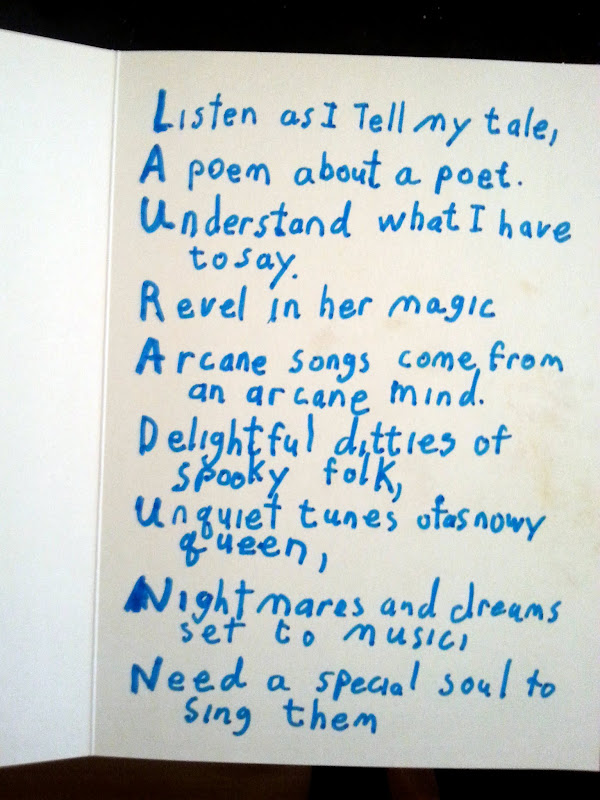 Listen as I Tell my tale,
A poem about a poet.
Understand what I have
to say.
Revel in her magic
Arcane songs come from
an arcane mind.
Delightful ditties of
spooky folk,
Unquiet tunes of a snowy
queen,
Nightmares and dreams
set to music,
Need a special soul to
sing them